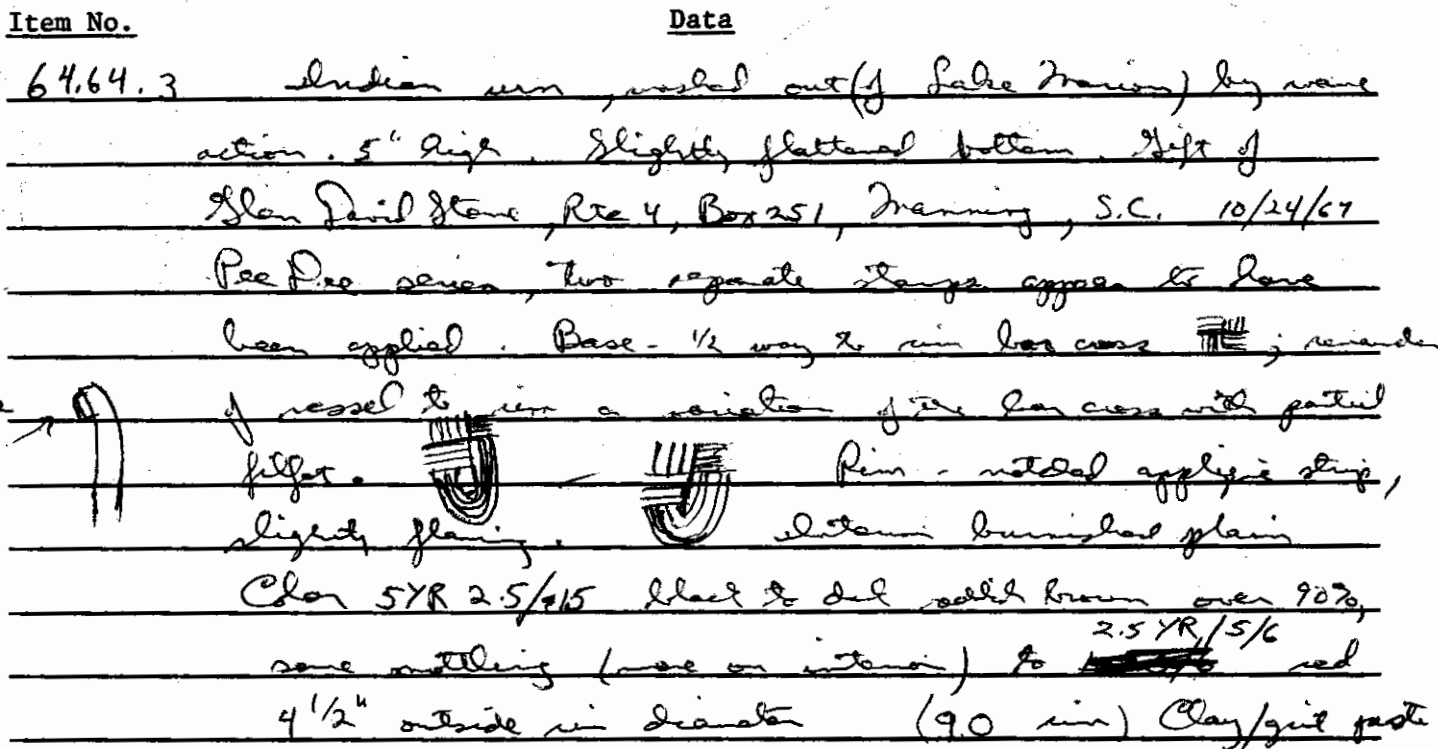 Item No. Data
64.64.3 Indian urn, washed out (of Lake Marion) by wave
action. 5" high. Slightly flattened bottom. Gift of
Glen David Stone, Rte 4, Box 251, Manning, S.C. 10/24/67
Pee Dee series, two separate stamps appear to have
been applied. Base - 1/2 way to rim bar cross ; remainder
of vessel to rim a variation of the bar cross with partial
filfot. Rim - notched applique strip,
slightly flaring. Interior burnished plain
Color 5YR 2.5/ black to dark reddish brown over 90%,
some mottling (more on interior) to 2.5 YR/5/6 red
4 1/2" outside rim diameter (90 rim) Clay/grit paste